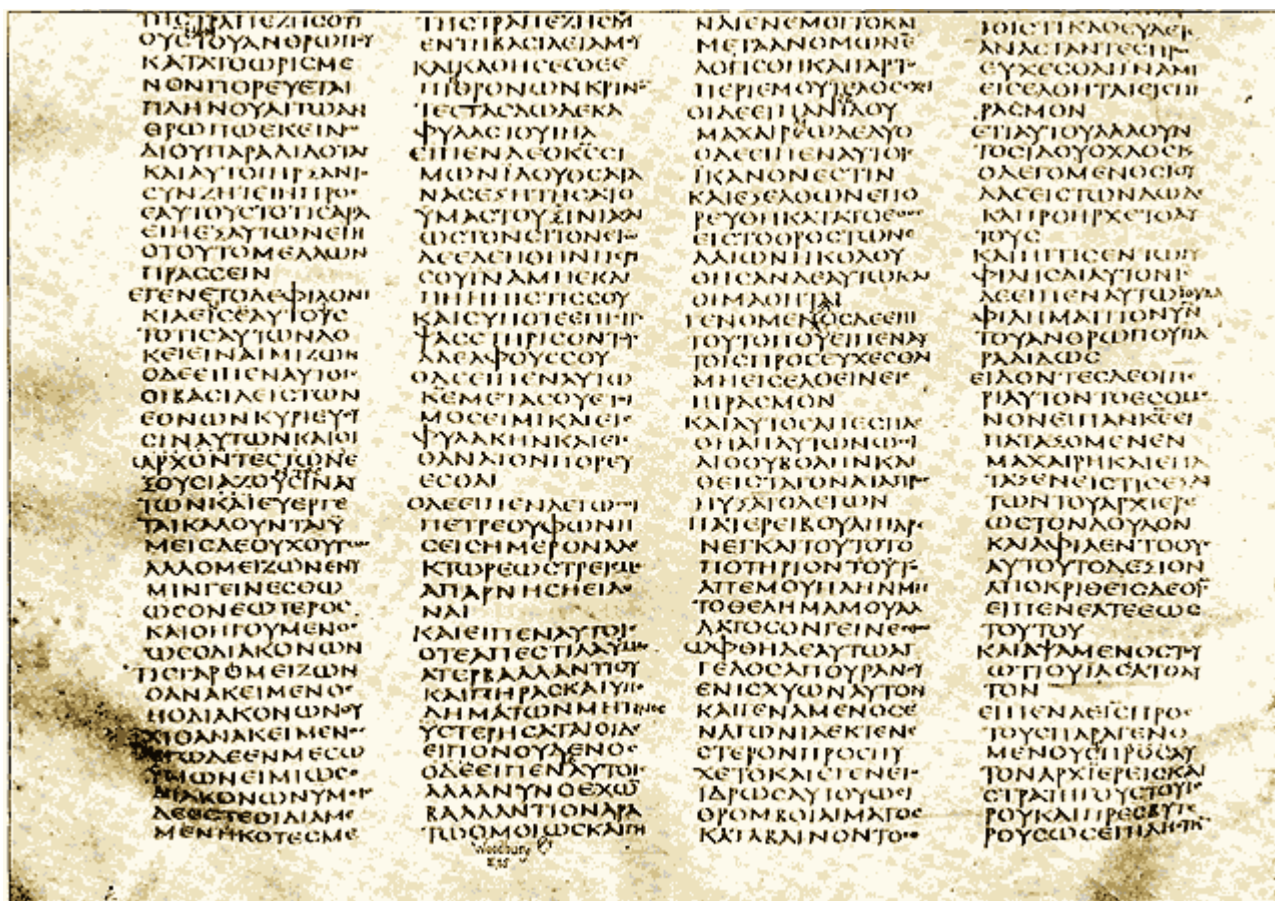 ΤΗCΤΡΑΠΕΖΗCΟΤΙ
ΟΥCΤΟΥΑΝΘΡΩΠΟΥ
ΚΑΤΑΤΟΩΡΙCΜΕ
ΝΟΝΠΟΡΕΥΕΤΑΙ
ΠΛΗΝΟΥΑΙΤΩΑΝ
ΘΡΩΠΩΕΚΕΙΝΩ
ΔΙΟΥΠΑΡΑΔΙΔΟΤΑΙ
ΚΑΙΑΥΤΟΙΗΡΞΑΝΤ
CΥΝΖΗΤΕΙΝΠΡΟC
ΕΑΥΤΟΥCΤΟΤΙCΑΡΑ
ΕΙΗΕΞΑΥΤΩΝΕΙΗ
ΟΤΟΥΤΟΜΕΛΛΩΝ
ΠΡΑCCΕΙΝ
ΕΓΕΝΕΤΟΔΕΦΙΛΟΝΙ
ΚΙΑΕΙCΕΑΥΤΟΥC
ΤΟΤΙCΑΥΤΩΝΔΟ
ΚΕΙΕΙΝΑΙΜΙΖΩΝ
ΟΔΕΕΙΠΕΝΑΥΤΟΙC
ΟΙΒΑCΙΛΕΙCΤΩΝ
ΕΘΝΩΝΚΥΡΙΕΥΟΥ
CΙΝΑΥΤΩΝΚΑΙΟΙ
ΑΡΧΟΝΤΕCΤΩΝΕ
ΞΟΥCΙΑΖΟΥCΙΝΑΥ
ΤΩΝΚΑΙΕΥΕΡΓΕ
ΤΑΙΚΑΛΟΥΝΤΑΙΫ
ΜΕΙCΔΕΟΥΧΟΥΤΩC
ΑΛΛΟΜΕΙΖΩΝΕΝΥ
ΜΙΝΓΕΙΝΕCΘΩ
ΩCΟΝΕΩΤΕΡΟC
ΚΑΙΟΗΓΟΥΜΕΝΟC
ΩCΟΔΙΑΚΟΝΩΝ
ΤΙCΓΑΡΟΜΕΙΖΩΝ
ΟΑΝΑΚΕΙΜΕΝΟC
ΗΟΔΙΑΚΟΝΩΝΟΥ
ΧΙΟΑΝΑΚΕΙΜΕΝΟC
ΕΓΩΔΕΕΝΜΕCΩ
ΥΜΩΝΕΙΜΙΩCΟ
ΔΙΑΚΟΝΩΝΥΜΕΙC
ΔΕΕCΤΕΟΙΔΙΑΜΕ
ΜΕΝΗΚΟΤΕCΜΕ
ΤΗCΤΡΑΠΕΖΗCΜ
ΕΝΤΗΒΑCΙΛΕΙΑΜΟΥ
ΚΑΙΚΑΘΗCΕCΘΕΕ
ΠΙΘΡΟΝΩΝΚΡΙΝΟ
ΤΕCΤΑCΔΩΔΕΚΑ
ΦΥΛΑCΤΟΥΙΗΛ
ΕΙΠΕΝΔΕΟΚCCΙ
ΜΩΝΪΔΟΥΟCΑΤΑ
ΝΑCΕΞΗΤΗCΑΤΟ
ΫΜΑCΤΟΥCΙΝΙΑCΑΙ
ΩCΤΟΝCΙΤΟΝΕΓΩ
ΔΕΕΔΕΗΘΗΝΠΕΡΙ
CΟΥΙΝΑΜΗΕΚΛΙ
ΠΗΗΠΙCΤΙCCΟΥ
ΚΑΙCΥΠΟΤΕΕΠΙCΤΡΕ
ΨΑCCΤΗΡΙCΟΝΤΟΥC
ΑΔΕΛΦΟΥCCΟΥ
ΟΔΕΕΙΠΕΝΑΥΤΩ
ΚΕΜΕΤΑCΟΥΕΤΟΙ
ΜΟCΕΙΜΙΚΑΙΕΙC
ΦΥΛΑΚΗΝΚΑΙΕΙC
ΘΑΝΑΤΟΝΠΟΡΕΥ
ΕCΘΑΙ
ΟΔΕΕΙΠΕΝΛΕΓΩCΟΙ
ΠΕΤΡΕΟΥΦΩΝΗ
CΕΙCΗΜΕΡΟΝΑΛΕ
ΚΤΩΡΕΩCΤΡΕΙCΜΕ
ΑΠΑΡΝΗCΗΕΙΔΕ
ΝΑΙ
ΚΑΙΕΙΠΕΝΑΥΤΟΙC
ΟΤΕΑΠΕCΤΙΛΑΫΜΑC
ΑΤΕΡΒΑΛΛΑΝΤΙΟΥ
ΚΑΙΠΗΡΑCΚΑΙΥΠΟ
ΔΗΜΑΤΩΝΜΗΤΙΝΟC
ΥCΤΕΡΗCΑΤΑΙΟΙΔΕ
ΕΙΠΟΝΟΥΔΕΝΟC
ΟΔΕΕΙΠΕΝΑΥΤΟΙC
ΑΛΛΑΝΥΝΟΕΧΩ
ΒΑΛΛΑΝΤΙΟΝΑΡΑ
ΤΩΟΜΟΙΩCΚΑΙΠΗ
ΜΕΓΑΑΝΟΜΩΝΕ
ΛΟΓΙCΘΗΚΑΙΓΑΡΤΟ
ΠΕΡΙΕΜΟΥΤΕΛΟCΕΧΙ
ΟΙΔΕΕΙΠΑΝΪΔΟΥ
ΜΑΧΑΙΡΕΩΔΕΔΥΟ
ΟΔΕΕΙΠΕΝΑΥΤΟΙC
ΪΚΑΝΟΝΕCΤΙΝ
ΚΑΙΕΞΕΛΘΩΝΕΠΟ
ΡΕΥΘΗΚΑΤΑΤΟΕΘΟC
ΕΙCΤΟΟΡΟCΤΩΝΕ
ΛΑΙΩΝΗΚΟΛΟΥ
ΘΗCΑΝΔΕΑΥΤΩΚΑΙ
ΟΙΜΑΘΗΤΑΙ
ΓΕΝΟΜΕΝΟCΔΕΕΠΙ
ΤΟΥΤΟΠΟΥΕΙΠΕΝΑΥ
ΤΟΙCΠΡΟCΕΥΧΕCΘΑΙ
ΜΗΕΙCΕΛΘΕΙΝΕΙC
ΠΙΡΑCΜΟΝ
ΚΑΙΑΥΤΟCΑΠΕCΠΑ
CΘΗΑΠΑΥΤΩΝΩCΕΙ
ΛΙΘΟΥΒΟΛΗΝΚΑΙ
ΘΕΙCΤΑΓΟΝΑΤΑΠΡΟ
ΗΥΞΑΤΟΛΕΓΩΝ
ΠΑΤΕΡΕΙΒΟΥΛΕΙΠΑΡΕ
ΝΕΓΚΑΙΤΟΥΤΟΤΟ
ΠΟΤΗΡΙΟΝΤΟΥΤΟ
ΑΠΕΜΟΥΠΛΗΝΜΗ
ΤΟΘΕΛΗΜΑΜΟΥΑΛ
ΛΑΤΟCΟΝΓΕΙΝΕCΘΩ
ΩΦΘΗΔΕΑΥΤΩΑΓ
ΓΕΛΟCΑΠΟΥΡΑΝΟΥ
ΕΝΙCΧΥΩΝΑΥΤΟΝ
ΚΑΙΓΕΝΑΜΕΝΟCΕ
ΝΑΓΩΝΙΑΕΚΤΕΝΕ
CΤΕΡΟΝΠΡΟCΗΥ
ΧΕΤΟΚΑΙΕΓΕΝΕΤΟ
ΪΔΡΩCΑΥΤΟΥΩCΕΙ
ΘΡΟΜΒΟΙΑΙΜΑΤΟC
ΚΑΤΑΒΑΙΝΟΝΤΟC
ΑΝΑCΤΑΝΤΕCΠΡΟC
ΕΥΧΕCΘΑΙΙΝΑΜΗ
ΕΙCΕΛΘΗΤΑΙΕΙCΠΙ
ΡΑCΜΟΝ
ΕΤΙΑΥΤΟΥΛΑΛΟΥΝ
ΤΟCΪΔΟΥΟΧΛΟCΚ
ΟΛΕΓΟΜΕΝΟCΙΟΥ
ΔΑCΕΙCΤΩΝΔΩΔΕ
ΚΑΙΠΡΟΗΡΧΕΤΟΑΥ
ΤΟΥC
ΚΑΙΗΓΓΙCΕΝΤΩΙΥ
ΦΙΛΗCΑΙΑΥΤΟΝΙC
ΔΕΕΙΠΕΝΑΥΤΩΙΟΥΔΑ
ΦΙΛΗΜΑΤΙΤΟΝΥΝ
ΤΟΥΑΝΘΡΩΠΟΥΠΑ
ΡΑΔΙΔΩC
ΕΙΔΟΝΤΕCΔΕΟΙΠΕ
ΡΙΑΥΤΟΝΤΟΕCΟΜΕ
ΝΟΝΕΙΠΑΝΚΕΕΙ
ΠΑΤΑΞΟΜΕΝΕΝ
ΜΑΧΑΙΡΗΚΑΙΕΠΑ
ΤΑΞΕΝΕΙCΤΙCΕΞΑΥ
ΤΩΝΤΟΥΑΡΧΙΕΡΕ
ΩCΤΟΝΔΟΥΛΟΝ
ΚΑΙΑΦΙΛΕΝΤΟΟΥC
ΑΥΤΟΥΤΟΔΕΞΙΟΝ
ΑΠΟΚΡΙΘΕΙCΔΕΟΙC
ΕΙΠΕΝΕΑΤΕΕΩC
ΤΟΥΤΟΥ
ΚΑΙΑΨΑΜΕΝΟCΤΟΥ
ΩΤΙΟΥΙΑCΑΤΟΑΥ
ΤΟΝ
ΕΙΠΕΝΔΕΙCΠΡΟC
ΤΟΥCΠΑΡΑΓΕΝΟ
ΜΕΝΟΥCΠΡΟCΑΥ
ΤΟΝΑΡΧΪΕΡΕΙCΚΑΙ
CΤΡΑΤΗΓΟΥCΤΟΥΙΕ
ΡΟΥΚΑΙΠΡΕCΒΥΤΕ
ΡΟΥCΩCΕΠΙΛΗCΤΗ
Woodbury